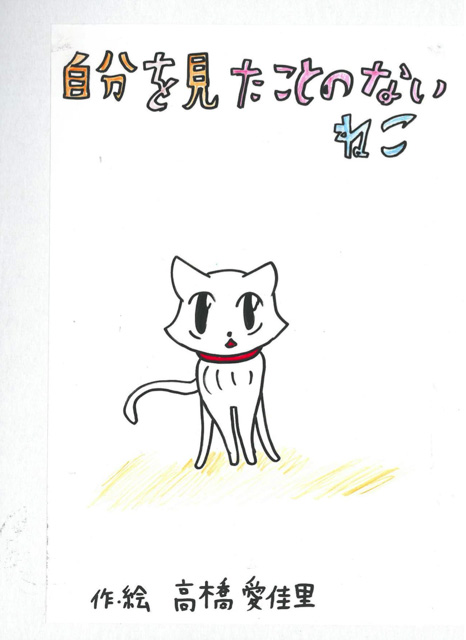 自分を見たことのない
ねこ
作・絵 高橋愛佳里